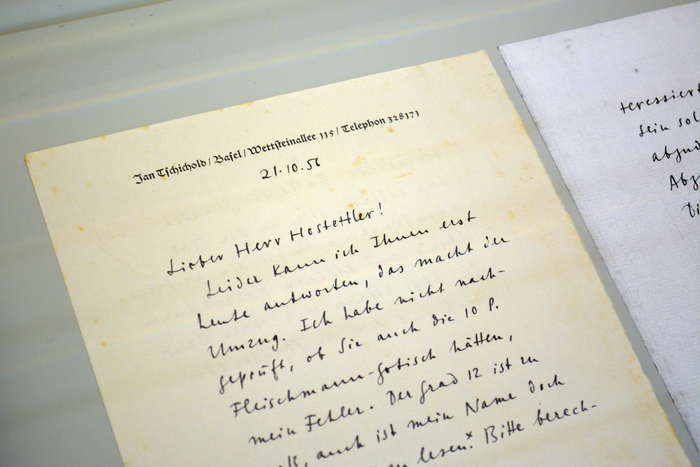 Jan Tschichold / Basel / Wettsteinallee 115 / Telephon 328171
21.10.56
Lieber Herr Hostettler!
Leider kann ich Ihnen erst
heute antworten, das macht der
Umzug. Ich habe nicht nach-
geprüft, ob Sie auch die 10 P.
Fleischmann-gotisch hätten,
mein Fehler. Der Grad 12 ist zu
auch ist mein Name doch
lesen.× Bitte berech-
teressiert
sein sol
abzu